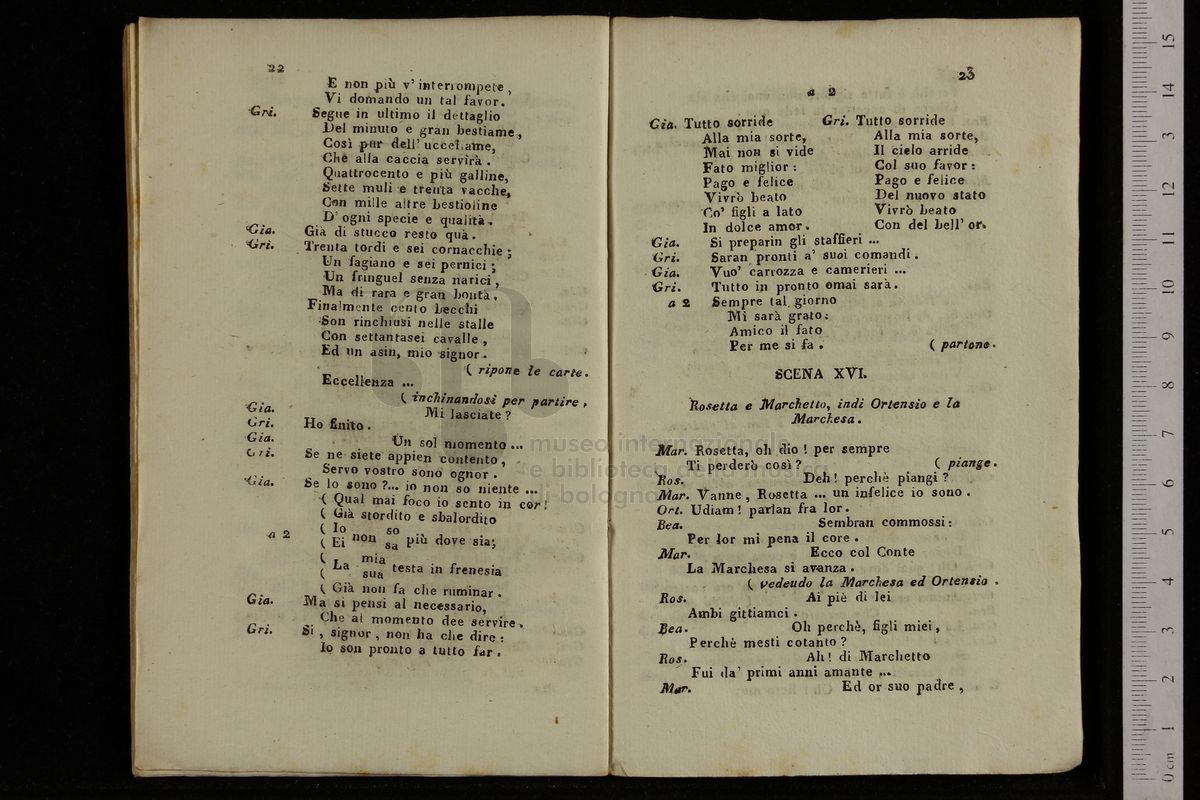 22
E non più v' interrompete,
Vi domando un tal favor.
Gri. Segue in ultimo il dettaglio
Del minuto e gran bestiame,
Così pur dell' uccellame,
Chè alla caccia servirà.
Quattrocento e più galline,
Sette muli e trenta vacche,
Con mille altre bestioline
D' ogni specie e qualità.
Gia. Già di stucco resto quà.
Gri. Trenta tordi e sei cornacchie;
Un fagiano e sei pernici;
Un fringuel senza narici,
Ma di rara e gran bontà.
Finalmente cento becchi
Son rinchiusi nelle stalle
Con settantasei cavalle,
Ed un asin, mio signor.
( ripone le carte.
Eccellenza ...
( inchinandosi per partire,
Gia. Mi lasciate?
Gri. Ho finito.
Gia. Un sol momento ...
Gri. Se ne siete appien contento,
Servo vostro sono ognor.
Gia. Se lo sono?... io non so niente ...
( Qual mai foco io sento in cor!
( Già stordito e sbalordito
a 2 ( Io non so più dove sia;
( Ei sa
( La mia testa in frenesia
( sua
( Già non fa che ruminar.
Gia. Ma si pensi al necessario,
Che al momento dee servire.
Gri. Si, signor, non ha che dire:
Io son pronto a tutto far.
23
a 2
Gia. Tutto sorride
Alla mia sorte,
Mai non si vide
Fato miglior:
Pago e felice
Vivrò beato
Co' figli a lato
In dolce amor.
Gri. Tutto sorride
Alla mia sorte,
Il cielo arride
Col suo favor:
Pago e felice
Del nuovo stato
Vivrò beato
Con del bell' or.
Gia. Si preparin gli staffieri ...
Gri. Saran pronti a' suoi comandi.
Gia. Vuo' carrozza e camerieri ...
Gri. Tutto in pronto omai sarà.
a 2 Sempre tal giorno
Mi sarà grato:
Amico il fato
Per me si fa. ( partono.
SCENA XVI.
Rosetta e Marchetto, indi Ortensio e la
Marchesa.
Mar. Rosetta, oh dio! per sempre
Ti perderò così? ( piange.
Ros. Deh! perchè piangi?
Mar. Vanne, Rosetta ... un infelice io sono.
Ort. Udiam! parlan fra lor.
Bea. Sembran commossi:
Per lor mi pena il core.
Mar. Ecco col Conte
La Marchesa si avanza.
( vedendo la Marchesa ed Ortensio.
Ros. Ai piè di lei
Ambi gittiamci.
Bea. Oh perchè, figli miei,
Perchè mesti cotanto?
Ros. Ah! di Marchetto
Fui da' primi anni amante ...
Mar. Ed or suo padre,
museo internazionale
e biblioteca della musica
di bologna
0 cm 1 2 3 4 5 6 7 8 9 10 11 12 13 14 15